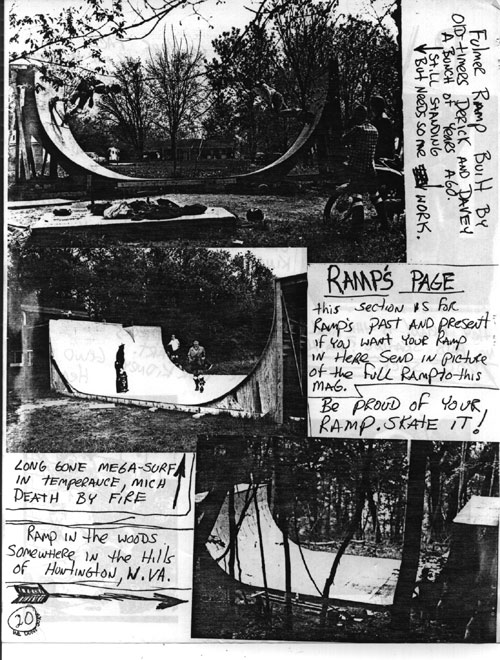 Fulmer Ramp Built By
Old-timers Derick and Davey
A Bunch of years ago
Still Standing
But needs some work.
Ramp's Page
this section is for
Ramp's past and present
if you want your Ramp
in Here Send in picture
of the full Ramp to this
Mag.
Be proud of your
Ramp. Skate it!
Long gone mega-surf
in Temperance, Mich
Death by fire
Ramp in the woods
Somewhere in the Hills
of Huntington, W.VA.
20